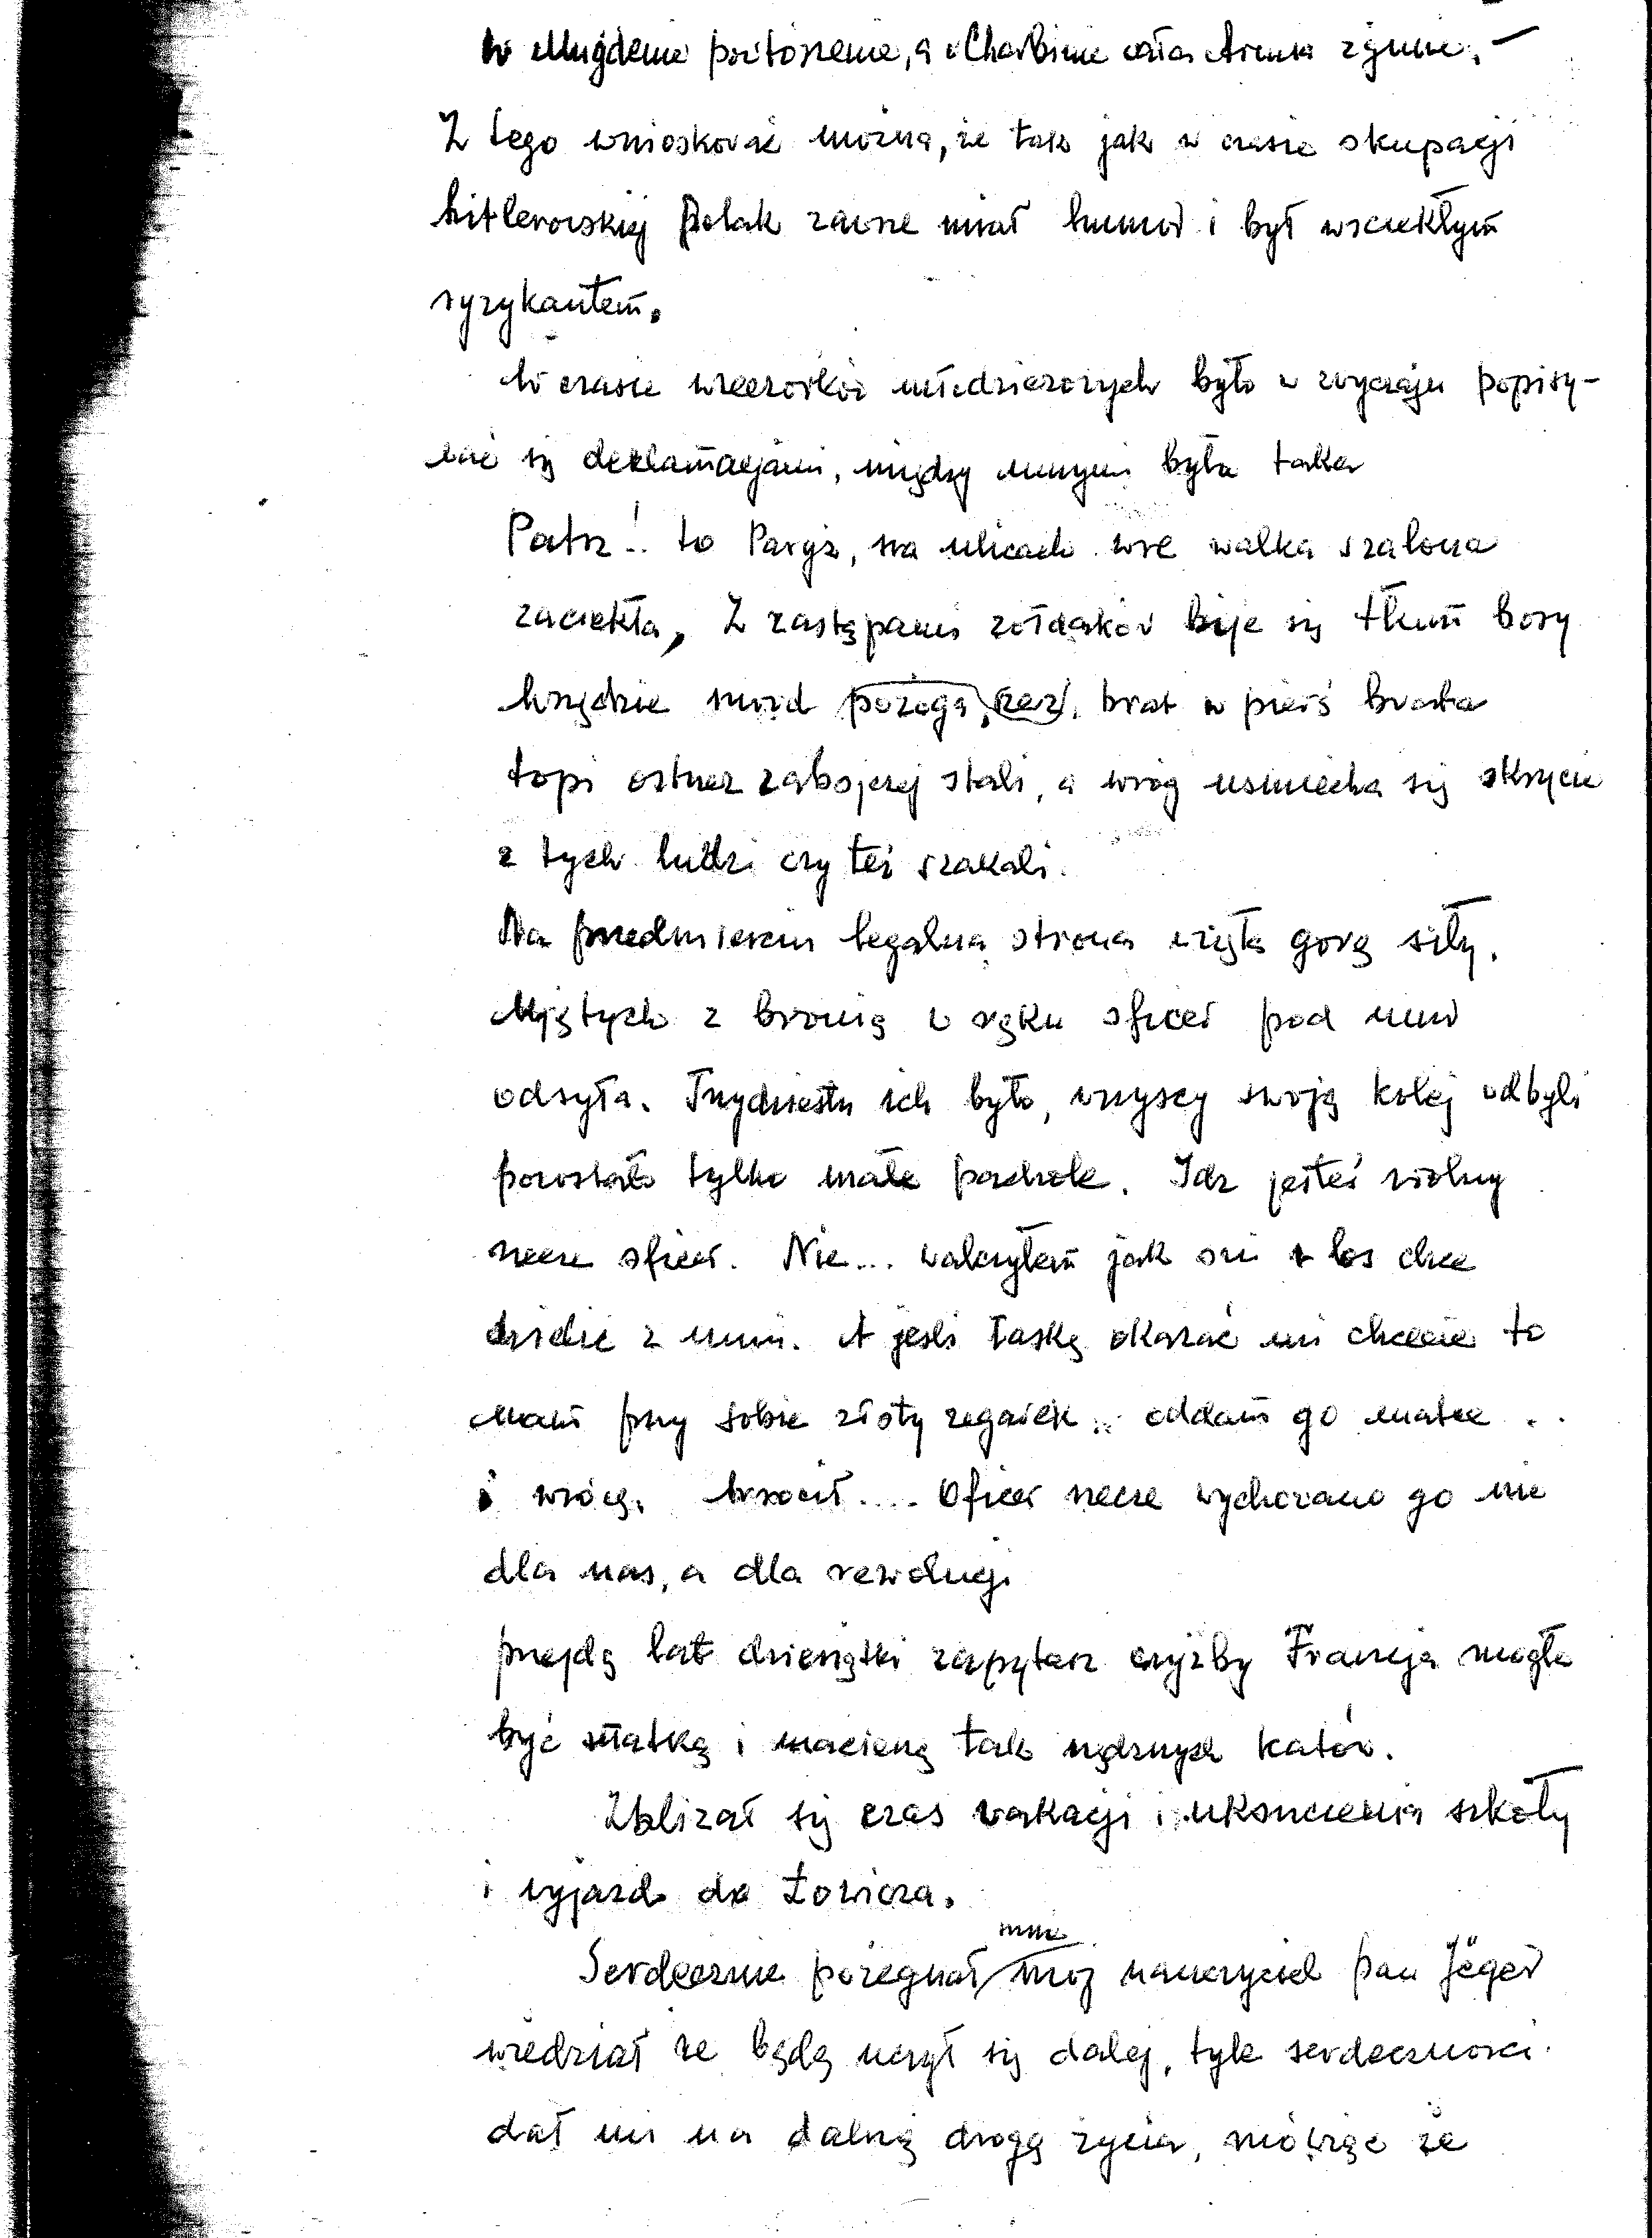 W Mugdenie potoszenie, a w Charbinie cała Armia zginie. –
Z tego wnioskować można, że tak jak w czasie okupacji
hitlerowskiej Polak zawsze miał humor i był wsciekłym
ryzykantem.
W czasie wieczorków młodzieżowych było w zwyczaju popisy-
wać się deklamacjami, między innymi była taka
Patrz! .. to Paryż, na ulicach wre walka szalona
zaciekła, Z zastępami żołdaków bije się tłum bosy
Wszędzie mord pożoga, rzeź, brat w pierś brata
topi ostrze zabojczej stali, a wróg usmiecha się skrycie
z tych ludzi czy też szakali.
Na przedmieściu legalna strona wzięła gorę siły.
Ujętych z bronią w ręku oficer pod mur
odsyła. Trzydziestu ich było, wszyscy swoją kolej odbyli
pozostało tylko małe pachole. Idz jesteś wolny
rzecze oficer. Nie... walczyłem jak oni i los chce
dzielić z nimi. A jeśli łaskę okazać mi chcecie to
mam przy sobie złoty zegarek .. oddam go matce ..
i wrócę. Wrócił .... Oficer rzecze wychowano go nie
dla nas, a dla rewolucji
przejdą lat dziesiątki zapytasz czyżby Francja mogła
być matką i macierzą tak nędznych katów.
Zbliżał się czas wakacji i ukonczenia szkoły
i wyjazd do Łowicza.
mnie
Serdecznie pożegnał moj nauczyciel pan Jëger
wiedział że będę uczył się dalej, tyle serdeczności
dał mi na dalszą drogę życia, mówiąc że